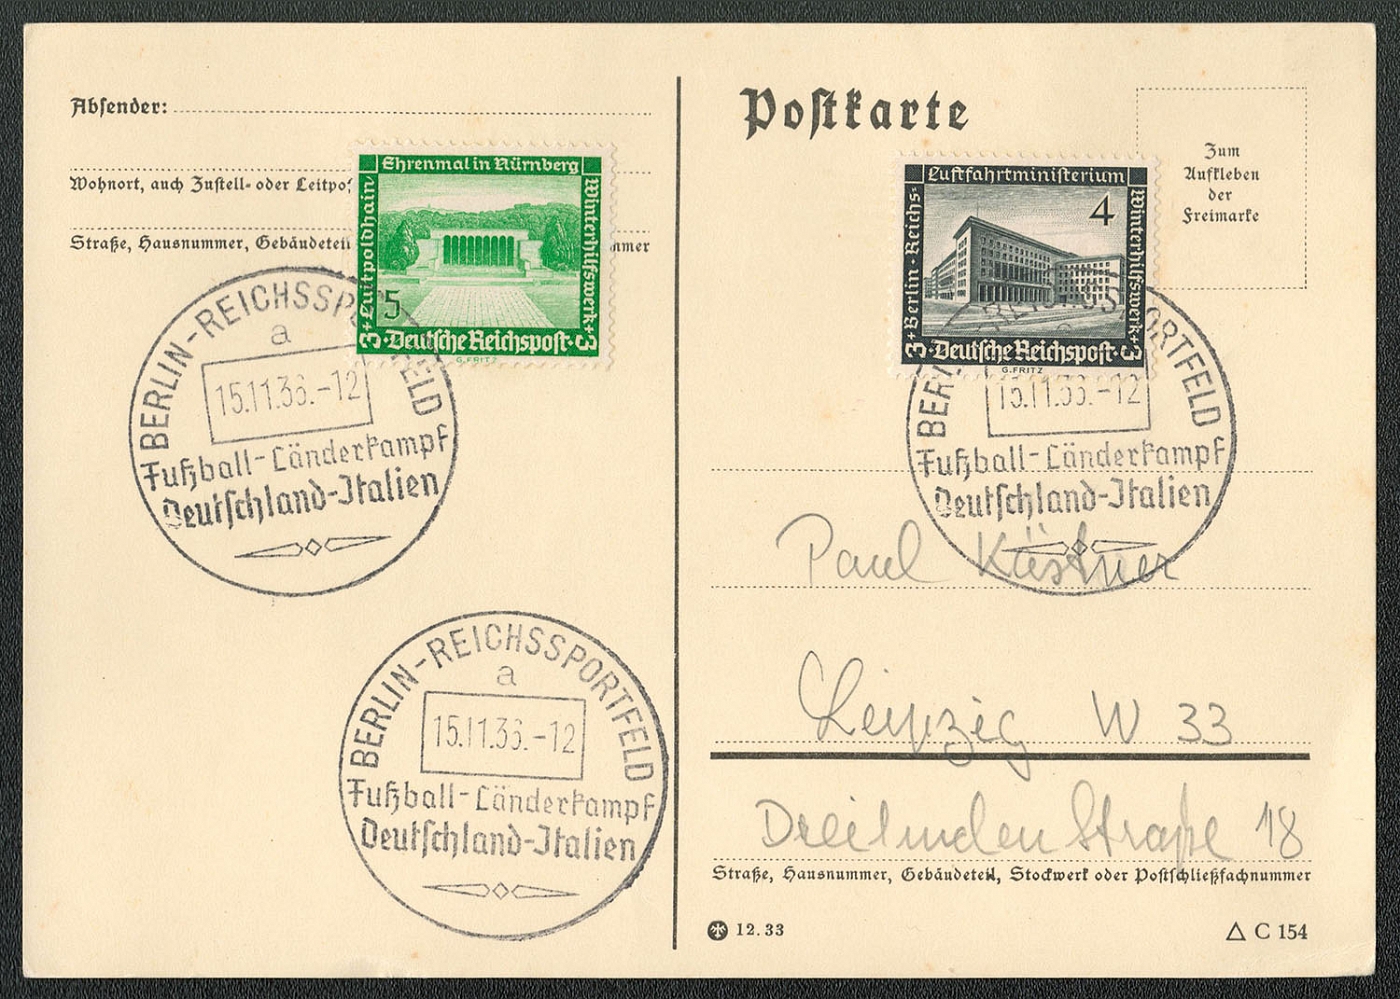 Absender:
Wohnort, auch Zustell- oder Leitpos
Straße, Hausnummer, Gebäudeteil
mmer
Ehrenmal in Nürnberg
Luitpoldhain
Winterhilfswerk
5
3 + Deutsche Reichspost + 3
G.FRITZ
BERLIN-REICHSSPORTFELD
a
15.11.36.-12
Fußball-Länderkampf
Deutschland-Italien
BERLIN-REICHSSPORTFELD
a
15.11.36.-12
Fußball-Länderkampf
Deutschland-Italien
Postkarte
Zum
Aufkleben
der
Freimarke
Luftfahrtministerium
Berlin · Reichs-
Winterhilfswerk
4
3 + Deutsche Reichspost + 3
G.FRITZ
BERLIN-REICHSSPORTFELD
15.11.36.-12
Fußball-Länderkampf
Deutschland-Italien
Paul Küstner
Leipzig W 33
Dreilindenstraße 18
Straße, Hausnummer, Gebäudeteil, Stockwerk oder Postschließfachnummer
12.33
△ C 154